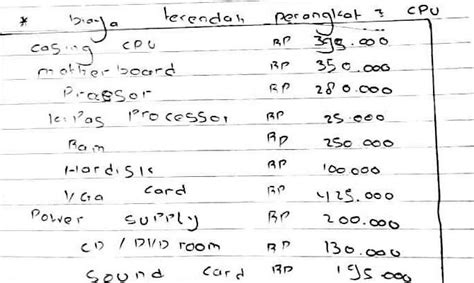 * biaya terendah perangkat 2 CPU
casing CPU RP 398.000
motherboard RP 350.000
Prosesor RP 280.000
kipas Processor RP 25.000
Ram RP 250 000
Hardisk RP 100 000
VGa card RP 425.000
Power supply RP 200.000
CD / DVD room RP 130.000
Sound card RP 195 000